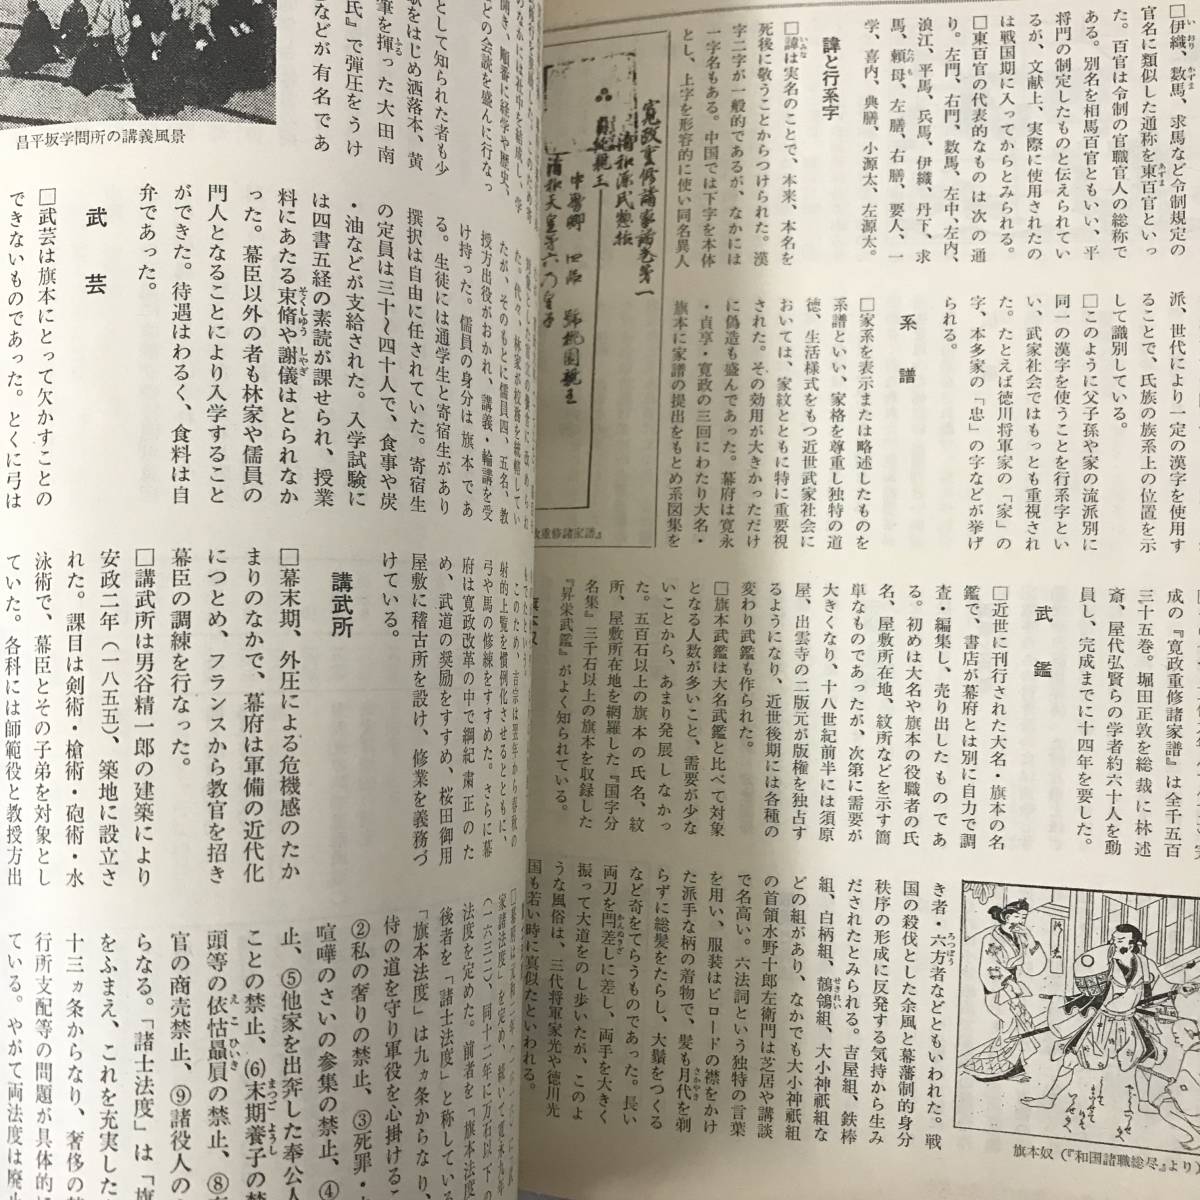 □伊織、数馬、求馬など令制規定の
官名に類似した通称を東百官といっ
た。百官は令制の官職官人の総称で
ある。別名を相馬百官ともいい、平
将門の制定したものと伝えられてい
るが、文献上、実際に使用されたの
は戦国期に入ってからとみられる。
□東百官の代表的なものは次の通
り。左門、右門、数馬、左中、左内、
浪江、平馬、兵馬、伊織、丹下、求
馬、頼母、左膳、右膳、要人、一
学、喜内、典膳、小源太、左源太。
諱と行系字
□諱は実名のことで、本来、本名を
死後に敬うことからつけられた。漢
字二字が一般的であるが、なかには
一字名もある。中国では下字を本体
とし、上字を形容的に使い同名異人
寛政重修諸家譜巻第一
清和源氏
清和天皇第六の皇子
重修諸家譜』
派、世代により一定の漢字を使用す
ることで、氏族の族系上の位置を示
して識別している。
□このように父子孫や家の流派別に
同一の漢字を使うことを行系字とい
い、武家社会ではもっとも重視され
た。たとえば徳川将軍家の「家」の
字、本多家の「忠」の字などが挙げ
られる。
系譜
□家系を表示または略述したものを
系譜といい、家格を尊重し独特の道
徳、生活様式をもつ近世武家社会に
おいては、家紋とともに特に重要視
された。その効用が大きかっただけ
に偽造も盛んであった。幕府は寛永
・貞享・寛政の三回にわたり大名・
旗本に家譜の提出をもとめ系図集を
成の『寛政重修諸家譜』は千五百
三十五巻。堀田正敦を総裁に林述
斎、屋代弘賢らの学者約六十人を動
員し、完成までに十四年を要した。
武鑑
□近世に刊行された大名・旗本の名
鑑で、書店が幕府とは別に自力で調
査・編集し、売り出したものであ
る。初めは大名や旗本の役職者の氏
名、屋敷所在地、紋所などを示す簡
単なものであったが、次第に需要が
大きくなり、十八世紀前半には須原
屋、出雲寺の二版元が版権を独占す
るようになり、近世後期には各種の
変わり武鑑も作られた。
□旗本武鑑は大名武鑑と比べて対象
となる人数が多いこと、需要が少な
いことから、あまり発展しなかっ
た。五百石以上の旗本の氏名、紋
所、屋敷所在地を網羅した『国字分
名集』三千石以上の旗本を収録した
『昇栄武鑑』がよく知られている。
旗本奴
旗本奴（『和国諸職総尽』より）
き者・六方者などともいわれた。戦
国の殺伐とした余風と幕藩制的身分
秩序の形成に反発する気持から生み
だされたとみられる。吉屋組、鉄棒
組、白柄組、鶺鴒組、大小神祇組な
どの組があり、なかでも大小神祇組
の首領水野十郎左衛門は芝居や講談
で名高い。六法詞という独特の言葉
を用い、服装はビロードの襟をかけ
た派手な柄の着物で、髪も月代を剃
らずに総髪をたらし、大鬚をつくる
など奇をてらうものであった。長い
両刀を閂差しに差し、両手を大きく
振って大道をのし歩いたが、このよ
うな風俗は、三代将軍家光や徳川光
国も若い時に真似たといわれる。
なかには社中を結成し、学
開き、順番に経学や歴史、
どの会読を盛んに行なっ
として知られた者も少
歌をはじめ洒落本、黄
筆を揮った大田南
氏』で弾圧をうけ
などが有名であ
昌平坂学問所の講義風景
た。代々、林家が校務を統轄してい
たが、そのもとに儒員四、五名、教
授方出役がおかれ、講義・輪講を受
け持った。儒員の身分は旗本であ
る。生徒には通学生と寄宿生があり
撰択は自由に任されていた。寄宿生
の定員は三十〜四十人で、食事や炭
・油などが支給された。入学試験に
は四書五経の素読が課せられ、授業
料にあたる束脩や謝儀はとられなか
った。幕臣以外の者も林家や儒員の
門人となることにより入学すること
ができた。待遇はわるく、食料は自
弁であった。
武芸
□武芸は旗本にとって欠かすことの
できないものであった。とくに弓は
このため、吉宗は翌年から春秋の
射的上覧を慣例化させるとともに、
弓や馬の修練をすすめた。さらに幕
府は寛政改革の中で綱紀粛正のた
め、武道の奨励をすすめ、桜田御用
屋敷に稽古所を設け、修業を義務づ
けている。
講武所
□幕末期、外圧による危機感のたか
まりのなかで、幕府は軍備の近代化
につとめ、フランスから教官を招き
幕臣の調練を行なった。
□講武所は男谷精一郎の建築により
安政二年（一八五五）、築地に設立さ
れた。課目は剣術・槍術・砲術・水
泳術で、幕臣とその子弟を対象とし
ていた。各科には師範役と教授方出
家諸法度」を定め、続いて寛永九年
（一六三二）、同十二年に万石以下の
法度を定めた。前者を「旗本法度
後者を「諸士法度」と称している
「旗本法度」は九ヵ条からなり、
侍の道を守り軍役を心掛けるこ
②私の奢りの禁止、③死罪・
喧嘩のさいの参集の禁止、④
止、⑤他家を出奔した奉公人
ことの禁止、⑥末期養子の禁
頭等の依怙贔屓の禁止、⑧
官の商売禁止、⑨諸役人の
らなる。「諸士法度」は「旗
をふまえ、これを充実した
十三ヵ条からなり、奢侈の禁
行所支配等の問題が具体的に
ている。やがて両法度は廃止